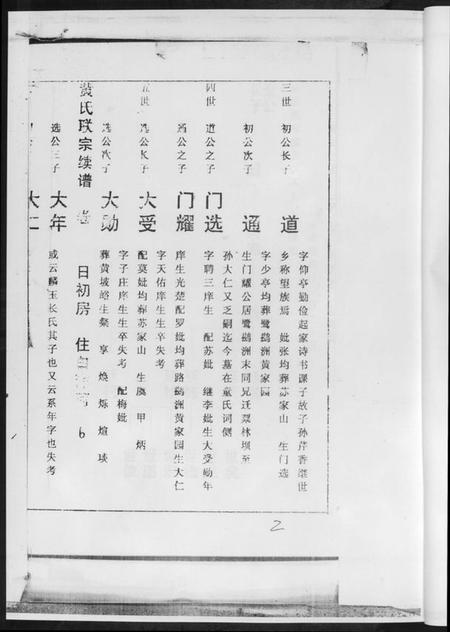 三世 初公长子 道 字仰亭勤俭起家诗书课子故子孙芹香继世
乡称望族焉 妣张均葬苏家山 生门选
初公次子 通 字少亭均葬鹭鹚洲黄家园
生门耀公居鹭鹚洲末同兄迁粟林坝至
孙大仁又乏嗣迄今墓在童氏词侧
四世 道公之子 门选 字聘三庠生 配苏妣 继李妣生大受勋年
通公之子 门耀 庠生光楚配罗妣均葬路鹚洲黄家园生大仁
字天佑庠生生卒失考
五世 选公长子 大受 配莫妣均葬苏家山 生 甲 炳
字子庄庠生生卒失考 配梅妣
选公次子 大勋 葬黄坡峪生燊 享 焕 烁 煊 琰
黄氏联宗续谱 卷 日初房 住 6
选公三子 大年 或云麟玉长氏其子也又云系年字也失考
大仁
2